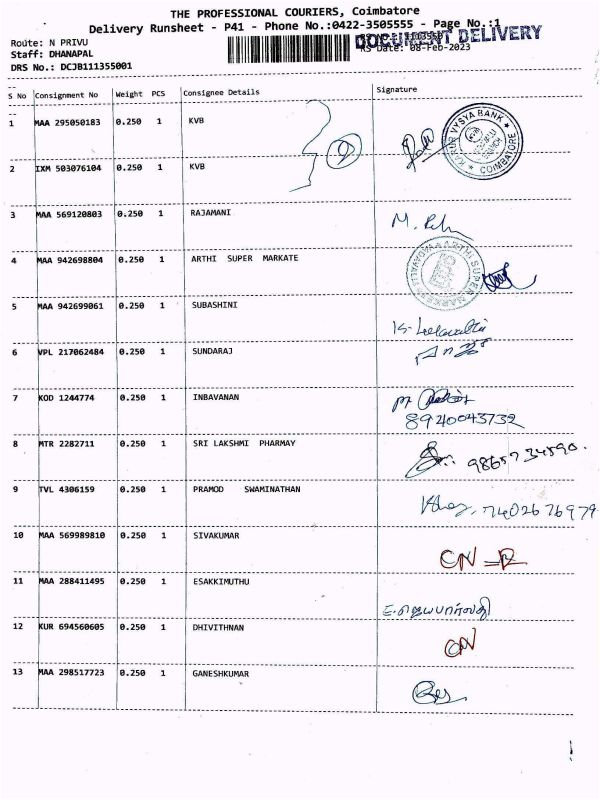 THE PROFESSIONAL COURIERS, Coimbatore
Delivery Runsheet - P41 - Phone No.:0422-3505555 - Page No.:1
DOCUMENT DELIVERY
Route: N PRIVU
Staff: DHANAPAL
RS Date: 08-Feb-2023
DRS No.: DCJB111355001
S No Consignment No Weight PCS Consignee Details Signature
1 MAA 295050183 0.250 1 KVB
KARUR VYSYA BANK COIMBATORE
2 IXM 503076104 0.250 1 KVB
3 MAA 569120803 0.250 1 RAJAMANI
4 MAA 942698804 0.250 1 ARTHI SUPER MARKATE
5 MAA 942699061 0.250 1 SUBASHINI
6 VPL 217062484 0.250 1 SUNDARAJ
7 KOD 1244774 0.250 1 INBAVANAN
8920043732
8 MTR 2282711 0.250 1 SRI LAKSHMI PHARMAY
9865734590
9 TVL 4306159 0.250 1 PRAMOD SWAMINATHAN
7402676979
10 MAA 569989810 0.250 1 SIVAKUMAR
CN
11 MAA 288411495 0.250 1 ESAKKIMUTHU
12 KUR 694560605 0.250 1 DHIVITHNAN
CN
13 MAA 298517723 0.250 1 GANESHKUMAR